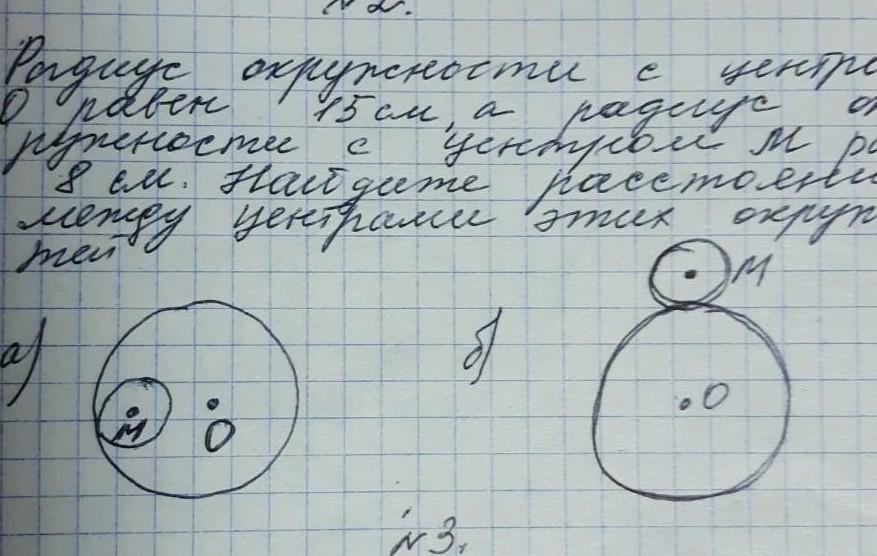 №2.
Радиус окружности с центро
О равен 15 см, а радиус ок
ружности с центром М ра
8 см. Найдите расстояни
между центрами этих окруж
тей
М
а) б)
О
М О
№3.